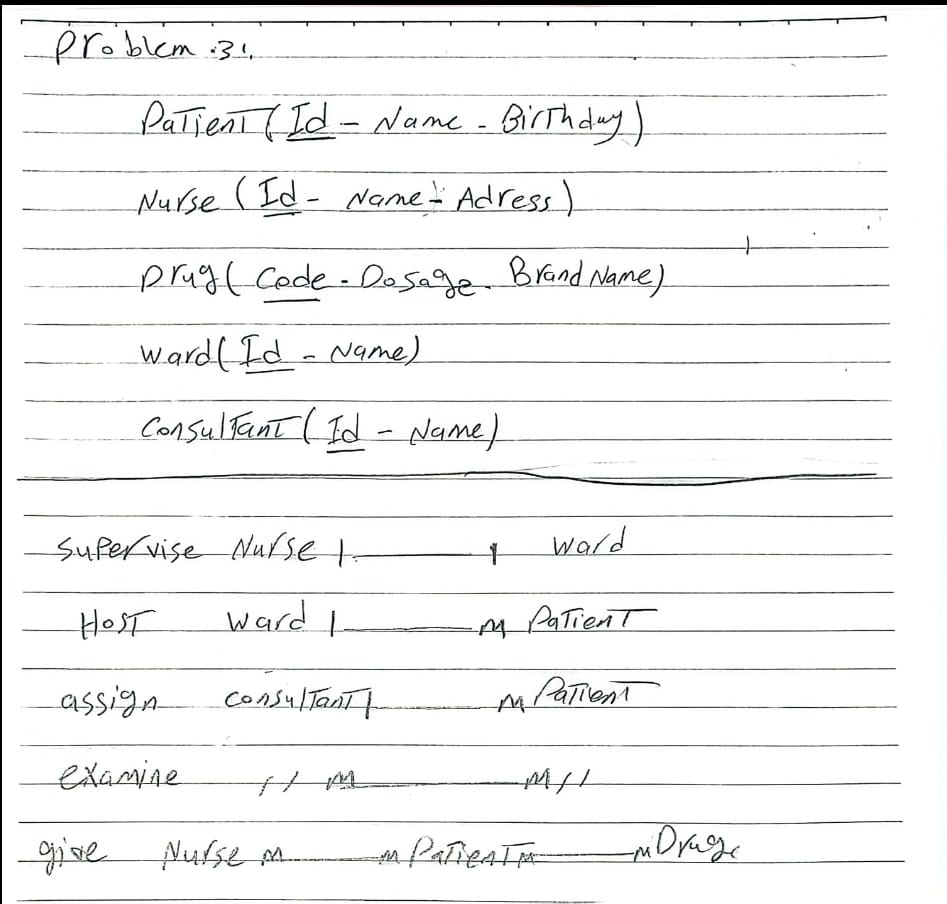 Problem .3!,
Patient (Id - Name - Birthday)
Nurse (Id - Name - Adress)
Drug (Code - Dosage - Brand Name)
Ward (Id - Name)
Consultant (Id - Name)
Supervise Nurse 1 1 Ward
Host Ward 1 m Patient
assign Consultant 1 m Patient
examine // m M //
give Nurse m m Patient m m Drug